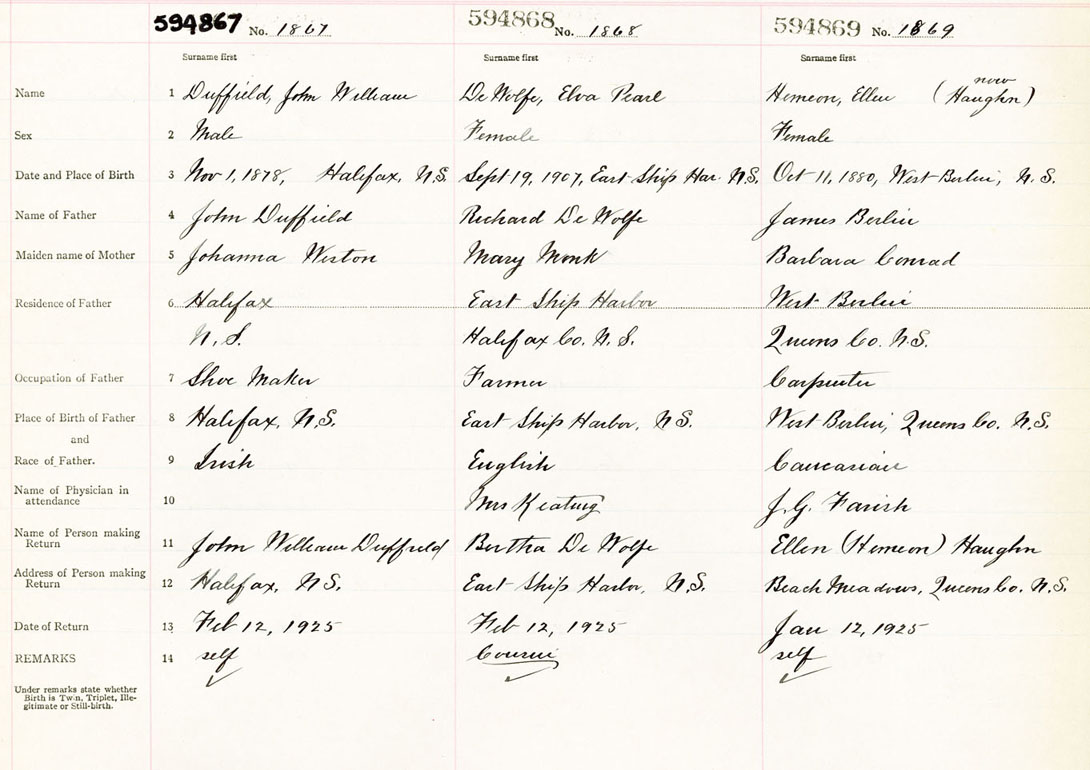 594867 No. 1867 594868 No. 1868 594869 No. 1869
Surname first Surname first Surname first
Name 1 Duffield, John William De Wolfe, Elva Pearl Hemeon, Ellen (now Haughn)
Sex 2 Male Female Female
Date and Place of Birth 3 Nov 1, 1878, Halifax, N.S. Sept 19, 1907, East Ship Har. N.S. Oct 11, 1880, West Berlin, N.S.
Name of Father 4 John Duffield Richard De Wolfe James Berlin
Maiden name of Mother 5 Johanna Weston Mary Monk Barbara Conrad
Residence of Father 6 Halifax East Ship Harbor West Berlin
N.S. Halifax Co. N.S. Queens Co. N.S.
Occupation of Father 7 Shoe Maker Farmer Carpenter
Place of Birth of Father 8 Halifax, N.S. East Ship Harbor, N.S. West Berlin, Queens Co. N.S.
and
Race of Father. 9 Irish English Caucasian
Name of Physician in attendance 10 Mrs Keating J.G. Farish
Name of Person making Return 11 John William Duffield Bertha De Wolfe Ellen (Hemeon) Haughn
Address of Person making Return 12 Halifax, N.S. East Ship Harbor, N.S. Beach Meadows, Queens Co. N.S.
Date of Return 13 Feb 12, 1925 Feb 12, 1925 Jan 12, 1925
REMARKS 14 self Cousin self
Under remarks state whether
Birth is Twin, Triplet, Ille-
gitimate or Still-birth.